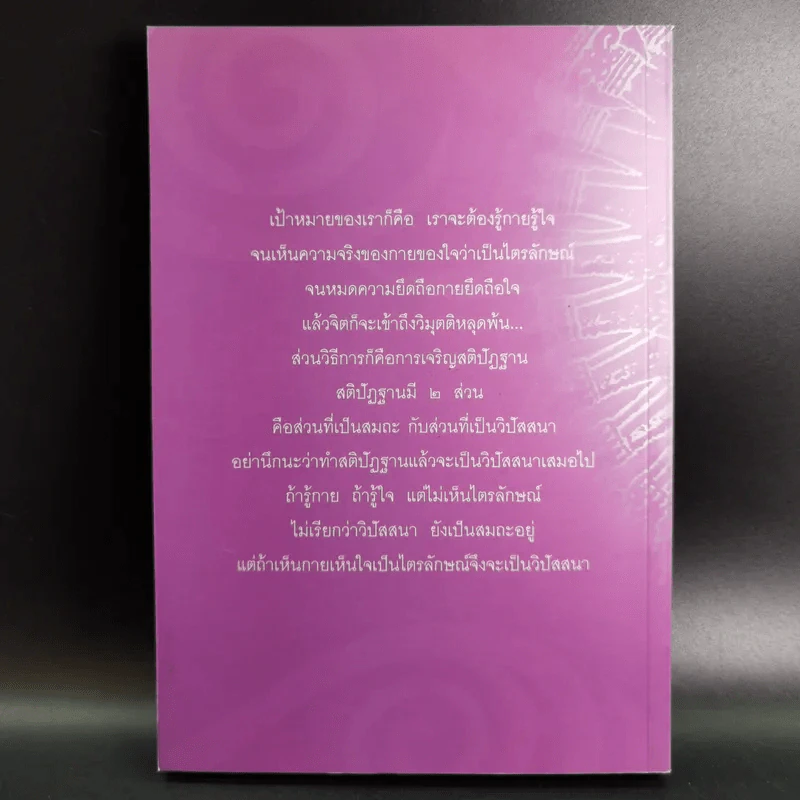 เป้าหมายของเราก็คือ เราจะต้องรู้กายรู้ใจ
จนเห็นความจริงของกายของใจว่าเป็นไตรลักษณ์
จนหมดความยึดถือกายยึดถือใจ
แล้วจิตก็จะเข้าถึงวิมุตติหลุดพ้น...
ส่วนวิธีการก็คือการเจริญสติปัฏฐาน
สติปัฏฐานมี ๒ ส่วน
คือส่วนที่เป็นสมถะ กับส่วนที่เป็นวิปัสสนา
อย่านึกนะว่าทำสติปัฏฐานแล้วจะเป็นวิปัสสนาเสมอไป
ถ้ารู้กาย ถ้ารู้ใจ แต่ไม่เห็นไตรลักษณ์
ไม่เรียกว่าวิปัสสนา ยังเป็นสมถะอยู่
แต่ถ้าเห็นกายเห็นใจเป็นไตรลักษณ์จึงจะเป็นวิปัสสนา